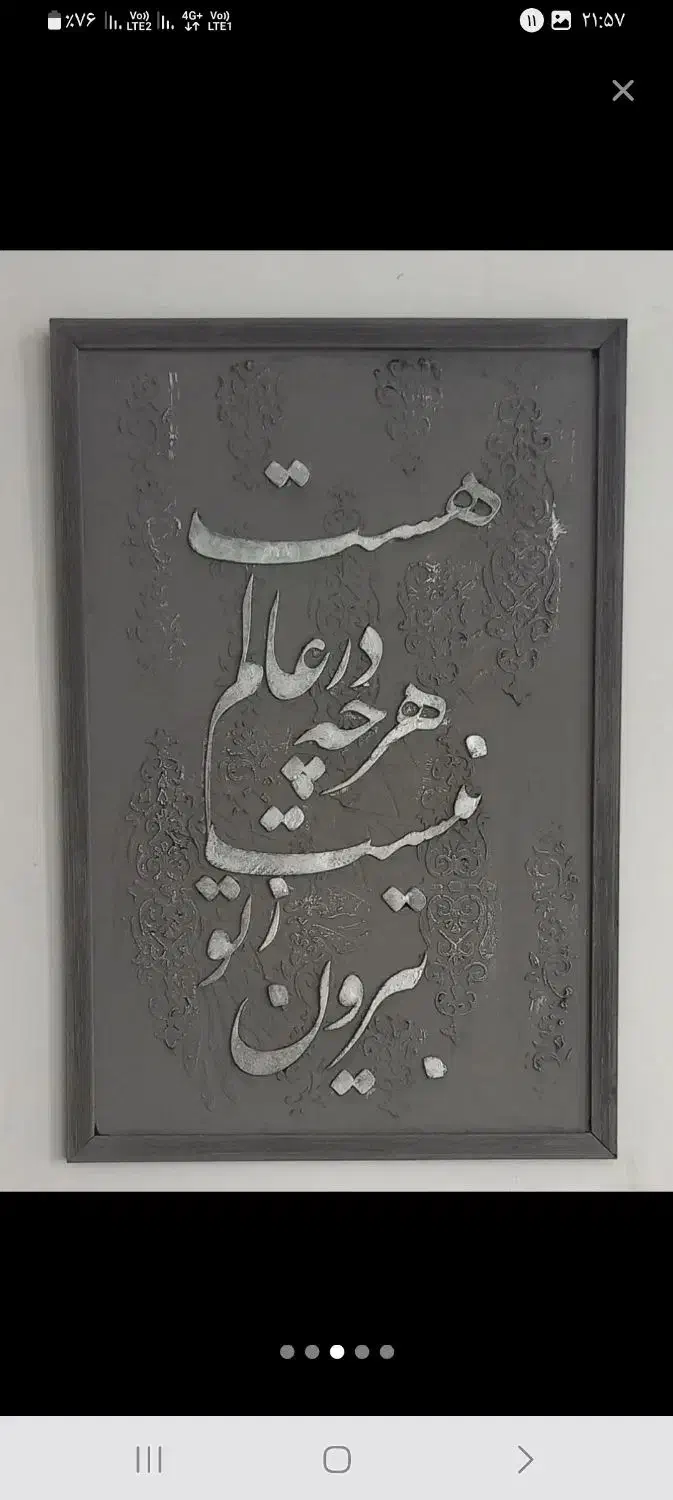 ٪۷۶ Vo) LTE2 4G+ Vo) LTE1 ۱۱ ۲۱:۵۷
هست
در عالم
هر چه
نیست
ز تو
بیرون